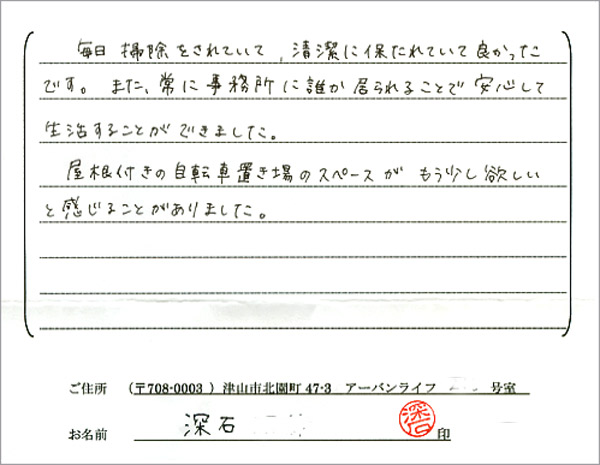 毎日 掃除をされていて、清潔に保たれていて良かった
です。また、常に事務所に誰か居られることで安心して
生活することができました。
屋根付きの自転車置き場のスペースが もう少し欲しい
と感じることがありました。
ご住所 (〒708-0003 ) 津山市北園町 47-3 アーバンライフ 号室
お名前 深石 深石 印